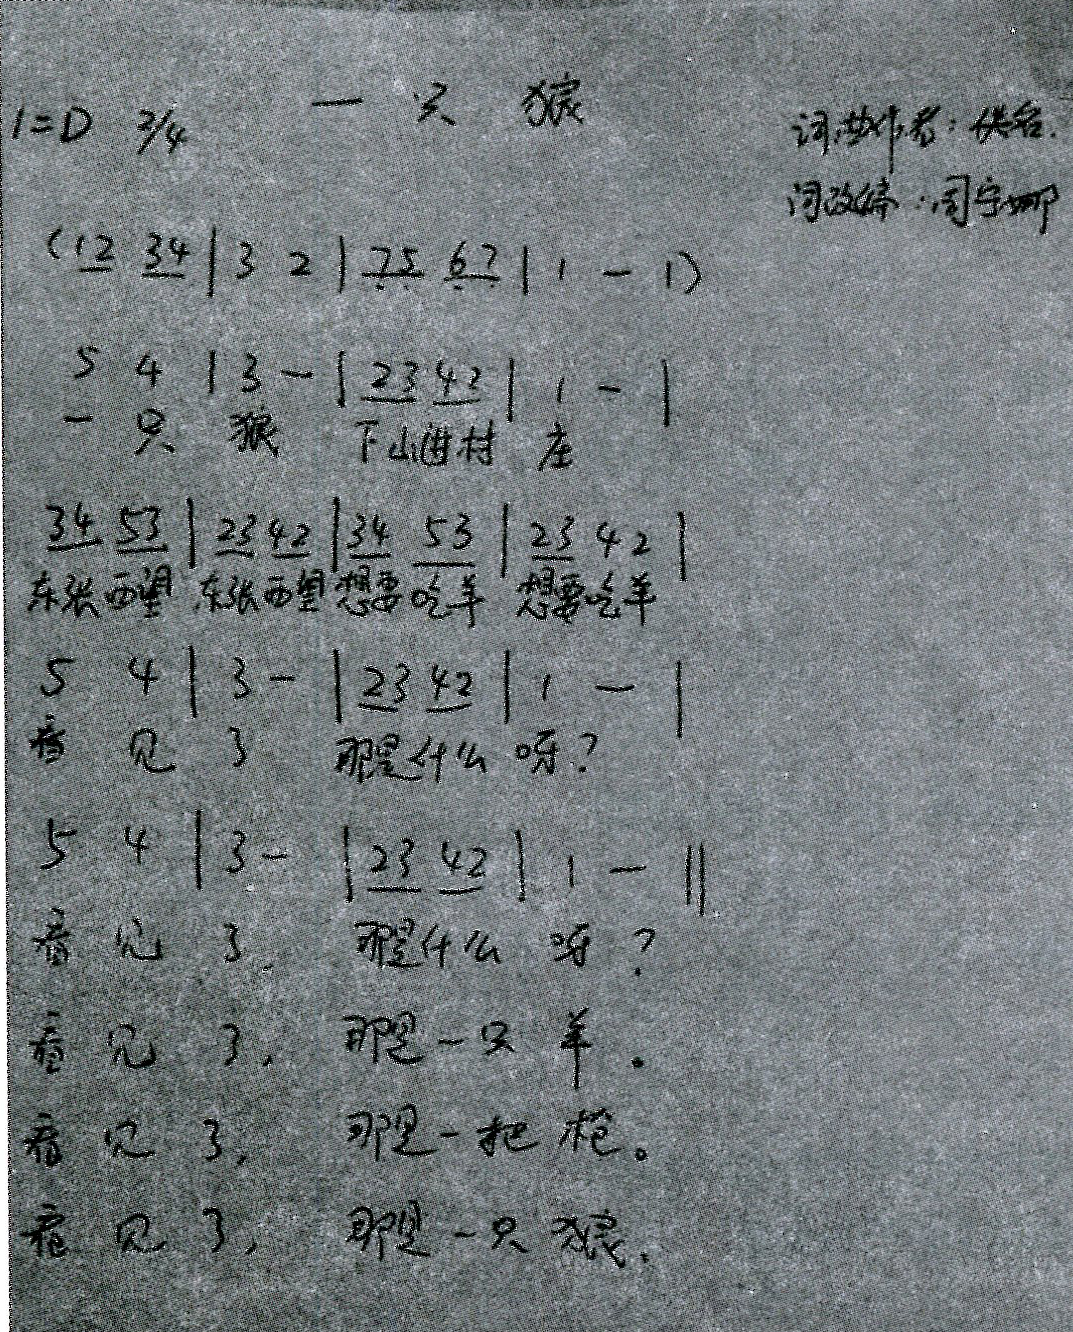 一只狼
1=D 2/4
词曲作者：佚名.
词改编：周宇娜
(12 34 | 3 2 | 75 67 | 1 - 1)
5 4 | 3 - | 23 42 | 1 - |
一只狼 下山进村庄
34 53 | 23 42 | 34 53 | 23 42 |
东张西望 东张西望 想要吃羊 想要吃羊
5 4 | 3 - | 23 42 | 1 - |
看见了 那是什么呀？
5 4 | 3 - | 23 42 | 1 - ‖
看见了， 那是什么呀？
看见了， 那是一只羊。
看见了， 那是一把枪。
看见了， 那是一只狼。